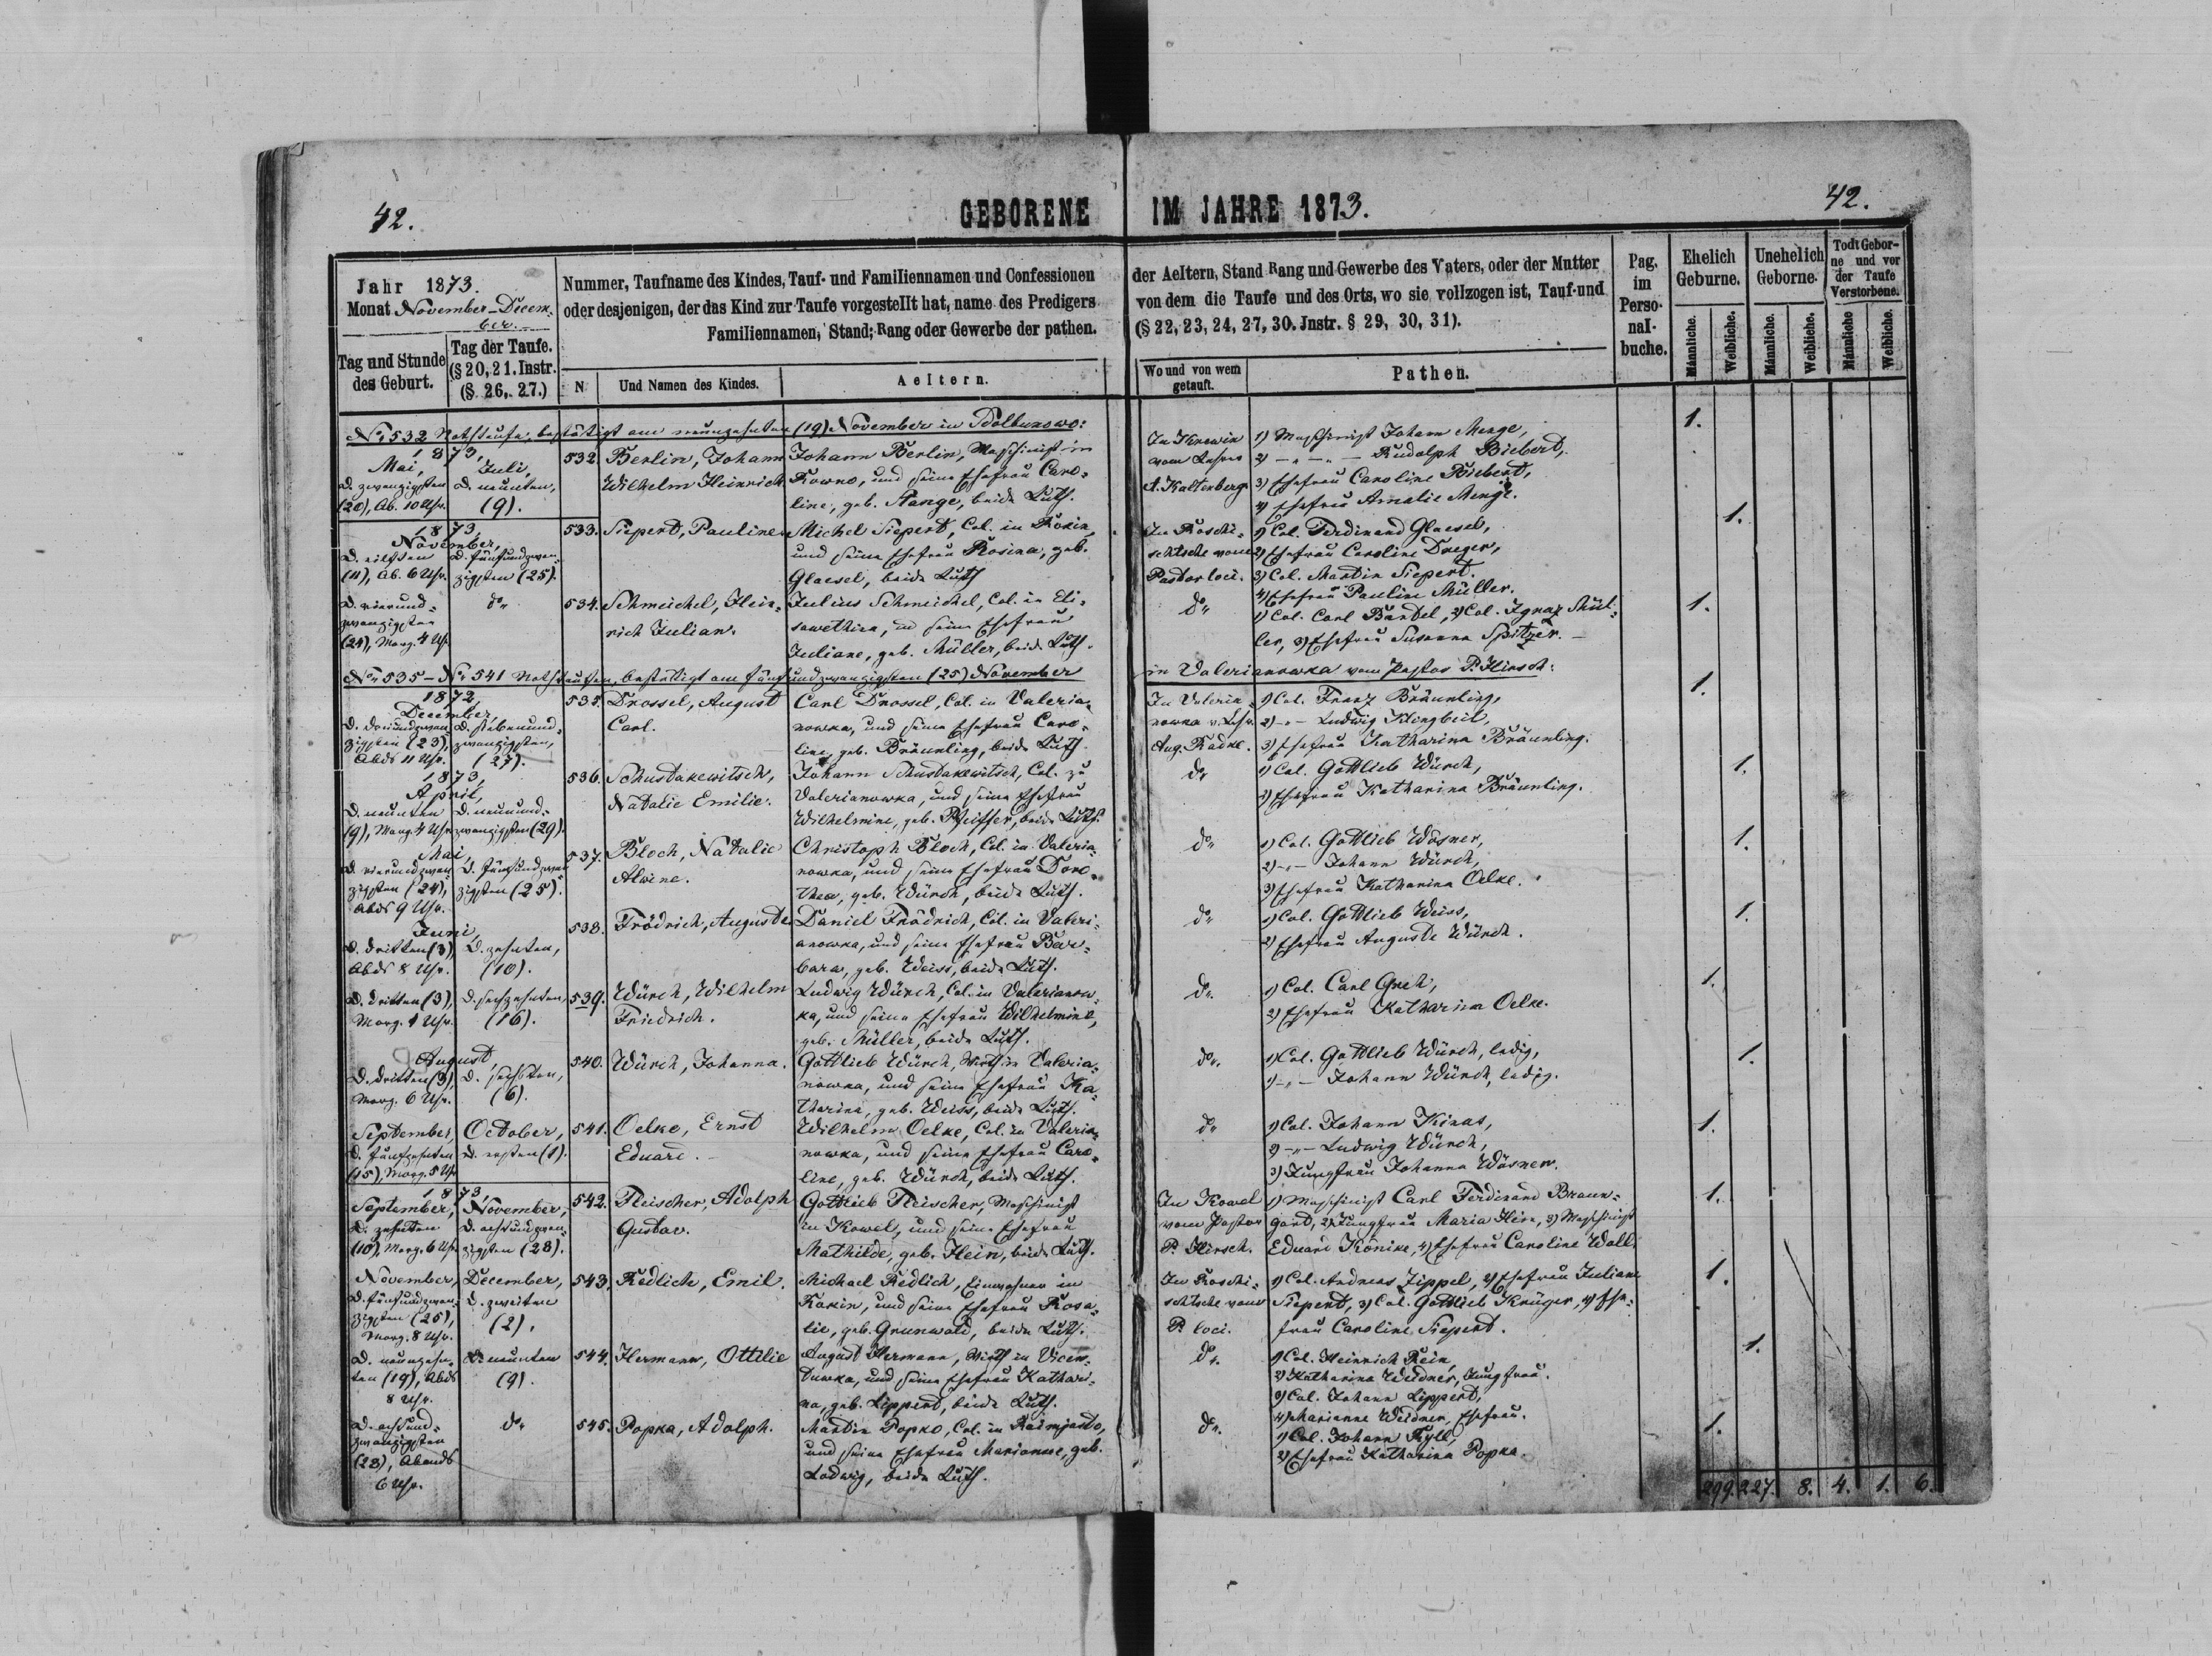 42.
GEBORENE IM JAHRE 1873.
42.
Jahr 1873.
Monat November-Decem-
ber.
Tag und Stunde
des Geburt.
Tag der Taufe.
(§ 20, 21. Instr.
(§. 26,. 27.)
Nummer, Taufname des Kindes, Tauf- und Familiennamen und Confessionen
oder desjenigen, der das Kind zur Taufe vorgestellt hat, name des Predigers
Familiennamen, Stand; Rang oder Gewerbe der pathen.
N
Und Namen des Kindes.
Aeltern.
der Aeltern, Stand Rang und Gewerbe des Vaters, oder der Mutter
von dem die Taufe und des Orts, wo sie vollzogen ist, Tauf-und
(§ 22, 23, 24, 27, 30. Jnstr. § 29, 30, 31).
Wo und von wem
getauft.
Pathen.
Pag.
im
Perso-
nal-
buche.
Ehelich
Geburne.
Unehelich
Geborne.
Todt Gebor-
ne und vor
der Taufe
Verstorbene.
Männliche.
Weibliche.
Männliche.
Weibliche.
Männliche
Weibliche.
No 532 Nothtaufe, bestätigt am neunzehnten (19) November in Sdolbunowo:
1873,
Mai,
D. zwanzigsten
(20), Ab. 10 Uhr.
Juli,
D. neunten,
(9).
532. Berlin, Johann
Wilhelm Heinrich
Johann Berlin, Maschinist in
Kowno, und seine Ehefrau Caro-
line, geb. Stange, beide Luth.
vom Lehrer
A. Kaltenberg.
1) Maschinist Johann Menge,
2) -„-„- Rudolph Biebert,
3) Ehefrau Caroline Biebert,
4) Ehefrau Amalie Menge.
1.
1873,
November,
D. eilften
(11), Ab. 6 Uhr.
D. fünfundzwan-
zigsten (25).
533. Siepert, Pauline.
Michel Siepert, Col. in Rokin,
und seine Ehefrau Rosina, geb.
Glaesel, beide Luth.
In Roschi-
schtsche vom
Pastor loci.
1) Col. Ferdinand Glaesel,
2) Ehefrau Caroline Dreger,
3) Col. Martin Siepert.
4) Ehefrau Pauline Müller.
1.
D. vierund-
zwanzigsten
(24), Morg. 4 Uhr
do
534. Schmeichel, Hein-
rich Julian.
Julius Schmeichel, Col. in Eli-
sawethin, und seine Ehefrau
Juliane, geb. Müller, beide Luth.
do
1) Col. Carl Bandel, 2) Col. Ignaz Mül-
ler, 3) Ehefrau Susanna Spitzer.
1.
No 535 – No 541 Nothtaufen, bestätigt am fünfundzwanzigsten (25) November in Valerianowka vom Pastor P. Hirsch:
1872,
December,
D. dreiundzwan-
zigsten (23),
Abds 11 Uhr.
D. siebenund-
zwanzigsten,
(27).
535. Drossel, August
Carl.
Carl Drossel, Col. in Valeria-
nowka, und seine Ehefrau Caro-
line, geb. Bräunling, beide Luth.
In Valeria-
nowka v. Lehr.
Aug. Radke.
1) Col. Franz Bräunling,
2) -„- Ludwig Klingbeil,
3) Ehefrau Katharina Bräunling.
1.
1873,
April,
D. neunten
(9), Morg. 4 Uhr
D. neunund-
zwanzigsten (29).
536. Schustakewitsch,
Natalie Emilie.
Johann Schustakewitsch, Col. zu
Valerianowka, und seine Ehefrau
Wilhelmine, geb. Pfeiffer, beide Luth.
do
1) Col. Gottlieb Würch,
2) Ehefrau Katharina Bräunling.
1.
Mai,
D. vierundzwan-
zigsten (24),
Abds 9 Uhr.
D. fünfundzwan-
zigsten (25).
537. Bloch, Natalie
Alwine.
Christoph Bloch, Col. in Valeria-
nowka, und seine Ehefrau Doro-
thea, geb. Würch, beide Luth.
do
1) Col. Gottlieb Wösner,
2) -„- Johann Würch,
3) Ehefrau Katharina Oelke.
1.
Juni,
D. dritten (3)
Abds 8 Uhr.
D. zehnten,
(10).
538. Frödrich, Auguste
Daniel Frödrich, Col. in Valeri-
anowka, und seine Ehefrau Bar-
bara, geb. Weiss, beide Luth.
do
1) Col. Gottlieb Weiss,
2) Ehefrau Auguste Würch.
1.
D. dritten (3),
Morg. 4 Uhr.
D. sechzehnten,
(16).
539. Würch, Wilhelm
Friedrich.
Ludwig Würch, Col. in Valerianow-
ka, und seine Ehefrau Wilhelmine,
geb. Müller, beide Luth.
do.
1) Col. Carl
2) Ehefrau Katharina Oelke.
1.
August,
D. dritten (3),
Morg. 6 Uhr.
D. sechsten,
(6).
540. Würch, Johanna.
Gottlieb Würch, Wirth in Valeria-
nowka, und seine Ehefrau Ka-
tharina, geb. Weiss, beide Luth.
do.
1) Col. Gottlieb Würch, ledig,
2) -„- Johann Würch, ledig.
1.
September,
D. fünfzehnten
(15), Morg. 5 Uhr
October,
D. ersten (1).
541. Oelke, Ernst
Eduard.
Wilhelm Oelke, Col. in Valeria-
nowka, und seine Ehefrau Caro-
line, geb. Würch, beide Luth.
do
1) Col. Johann Kinas,
2) -„- Ludwig Würch,
3) Jungfrau Johanna Wösner.
1.
1873,
September,
D. zehnten
(10), Morg. 6 Uhr
November,
D. achtundzwan-
zigsten (28).
542. Fleischer, Adolph
Gustav.
Gottlieb Fleischer, Maschinist
in Kowel, und seine Ehefrau
Mathilde, geb. Hein, beide Luth.
In Kowel
vom Pastor
P. Hirsch.
1) Maschinist Carl Ferdinand Braun-
gard, 2) Jungfrau Maria Hein, 3) Maschinist
Eduard Könike, 4) Ehefrau Caroline Woll.
1.
November,
D. fünfundzwan-
zigsten (25),
Morg. 8 Uhr.
December,
D. zweiten
(2).
543. Redlich, Emil.
Michael Redlich, Einwohner in
Rokin, und seine Ehefrau Rosa-
lie, geb. Grunwald, beide Luth.
In Roschi-
schtsche vom
P. loci.
1) Col. Andreas Zippel, 2) Ehefrau Juliane
Siepert, 3) Col. Gottlieb Krüger, 4) Ehe-
frau Caroline Siepert.
1.
D. neunzehn-
ten (19), Abds
8 Uhr.
D. neunten
(9).
544. Hermann, Ottilie
August Hermann, Wirth in Vicen-
tuwka, und seine Ehefrau Kathari-
na, geb. Lippert, beide Luth.
do.
1) Col. Heinrich Rein,
2) Katharina Weidner, Jungfrau.
3) Col. Johann Lippert,
4) Marianne Weidner, Ehefrau.
1.
D. achtund-
zwanzigsten
(28), Abends
6 Uhr.
do
545. Popka, Adolph.
Martin Popko, Col. in
und seine Ehefrau Marianne, geb.
Ludwig, beide Luth.
do.
1) Col. Johann Ryll,
2) Ehefrau Katharina Popka.
1.
299. 227. 8. 4. 1. 6.